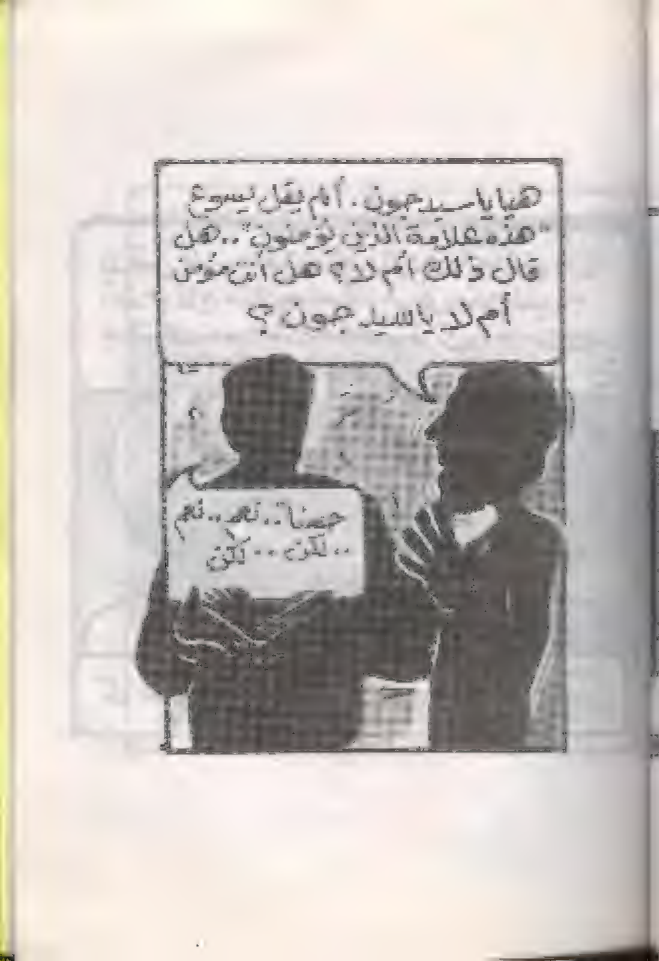 هيا يا سيد جون. ألم يقل يسوع
"هذه علامة الذين يؤمنون".. هل
قال ذلك أم لا؟ هل أنت مؤمن
أم لا يا سيد جون؟
حسناً.. نعم.. نعم
.. لكن.. لكن